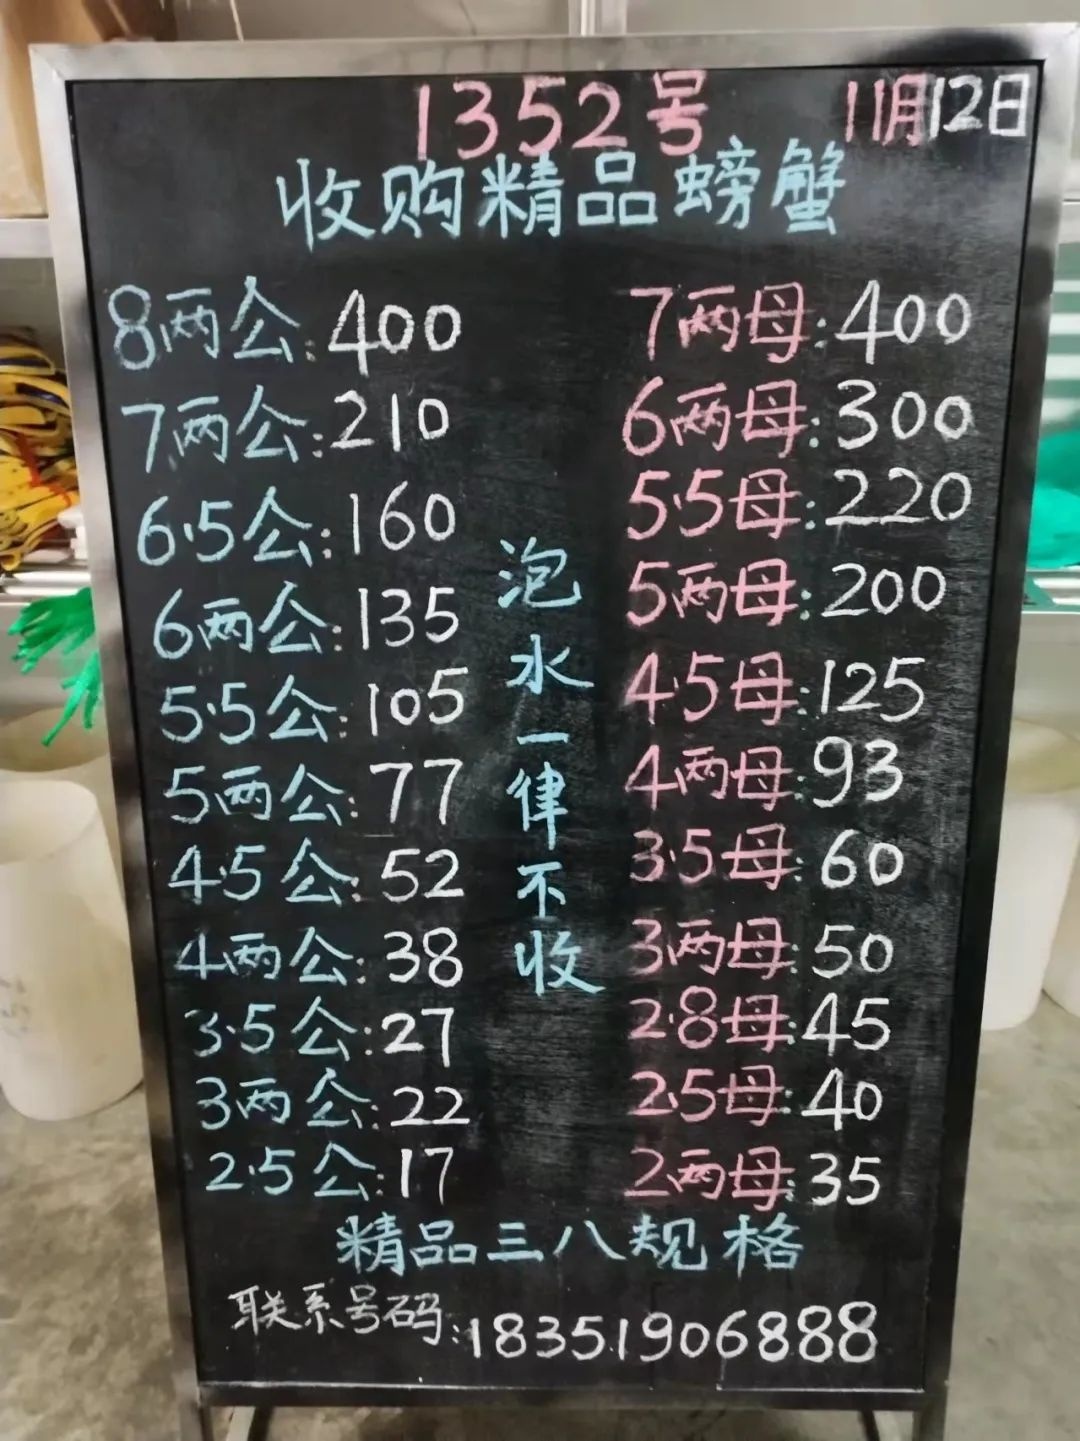 1352号 11月12日
收购精品螃蟹
8两公:400
7两公:210
6.5公:160
6两公:135
5.5公:105
5两公:77
4.5公:52
4两公:38
3.5公:27
3两公:22
2.5公:17
泡水一律不收
7两母:400
6两母:300
5.5母:220
5两母:200
4.5母:125
4两母:93
3.5母:60
3两母:50
2.8母:45
2.5母:40
2两母:35
精品三八规格
联系号码:18351906888